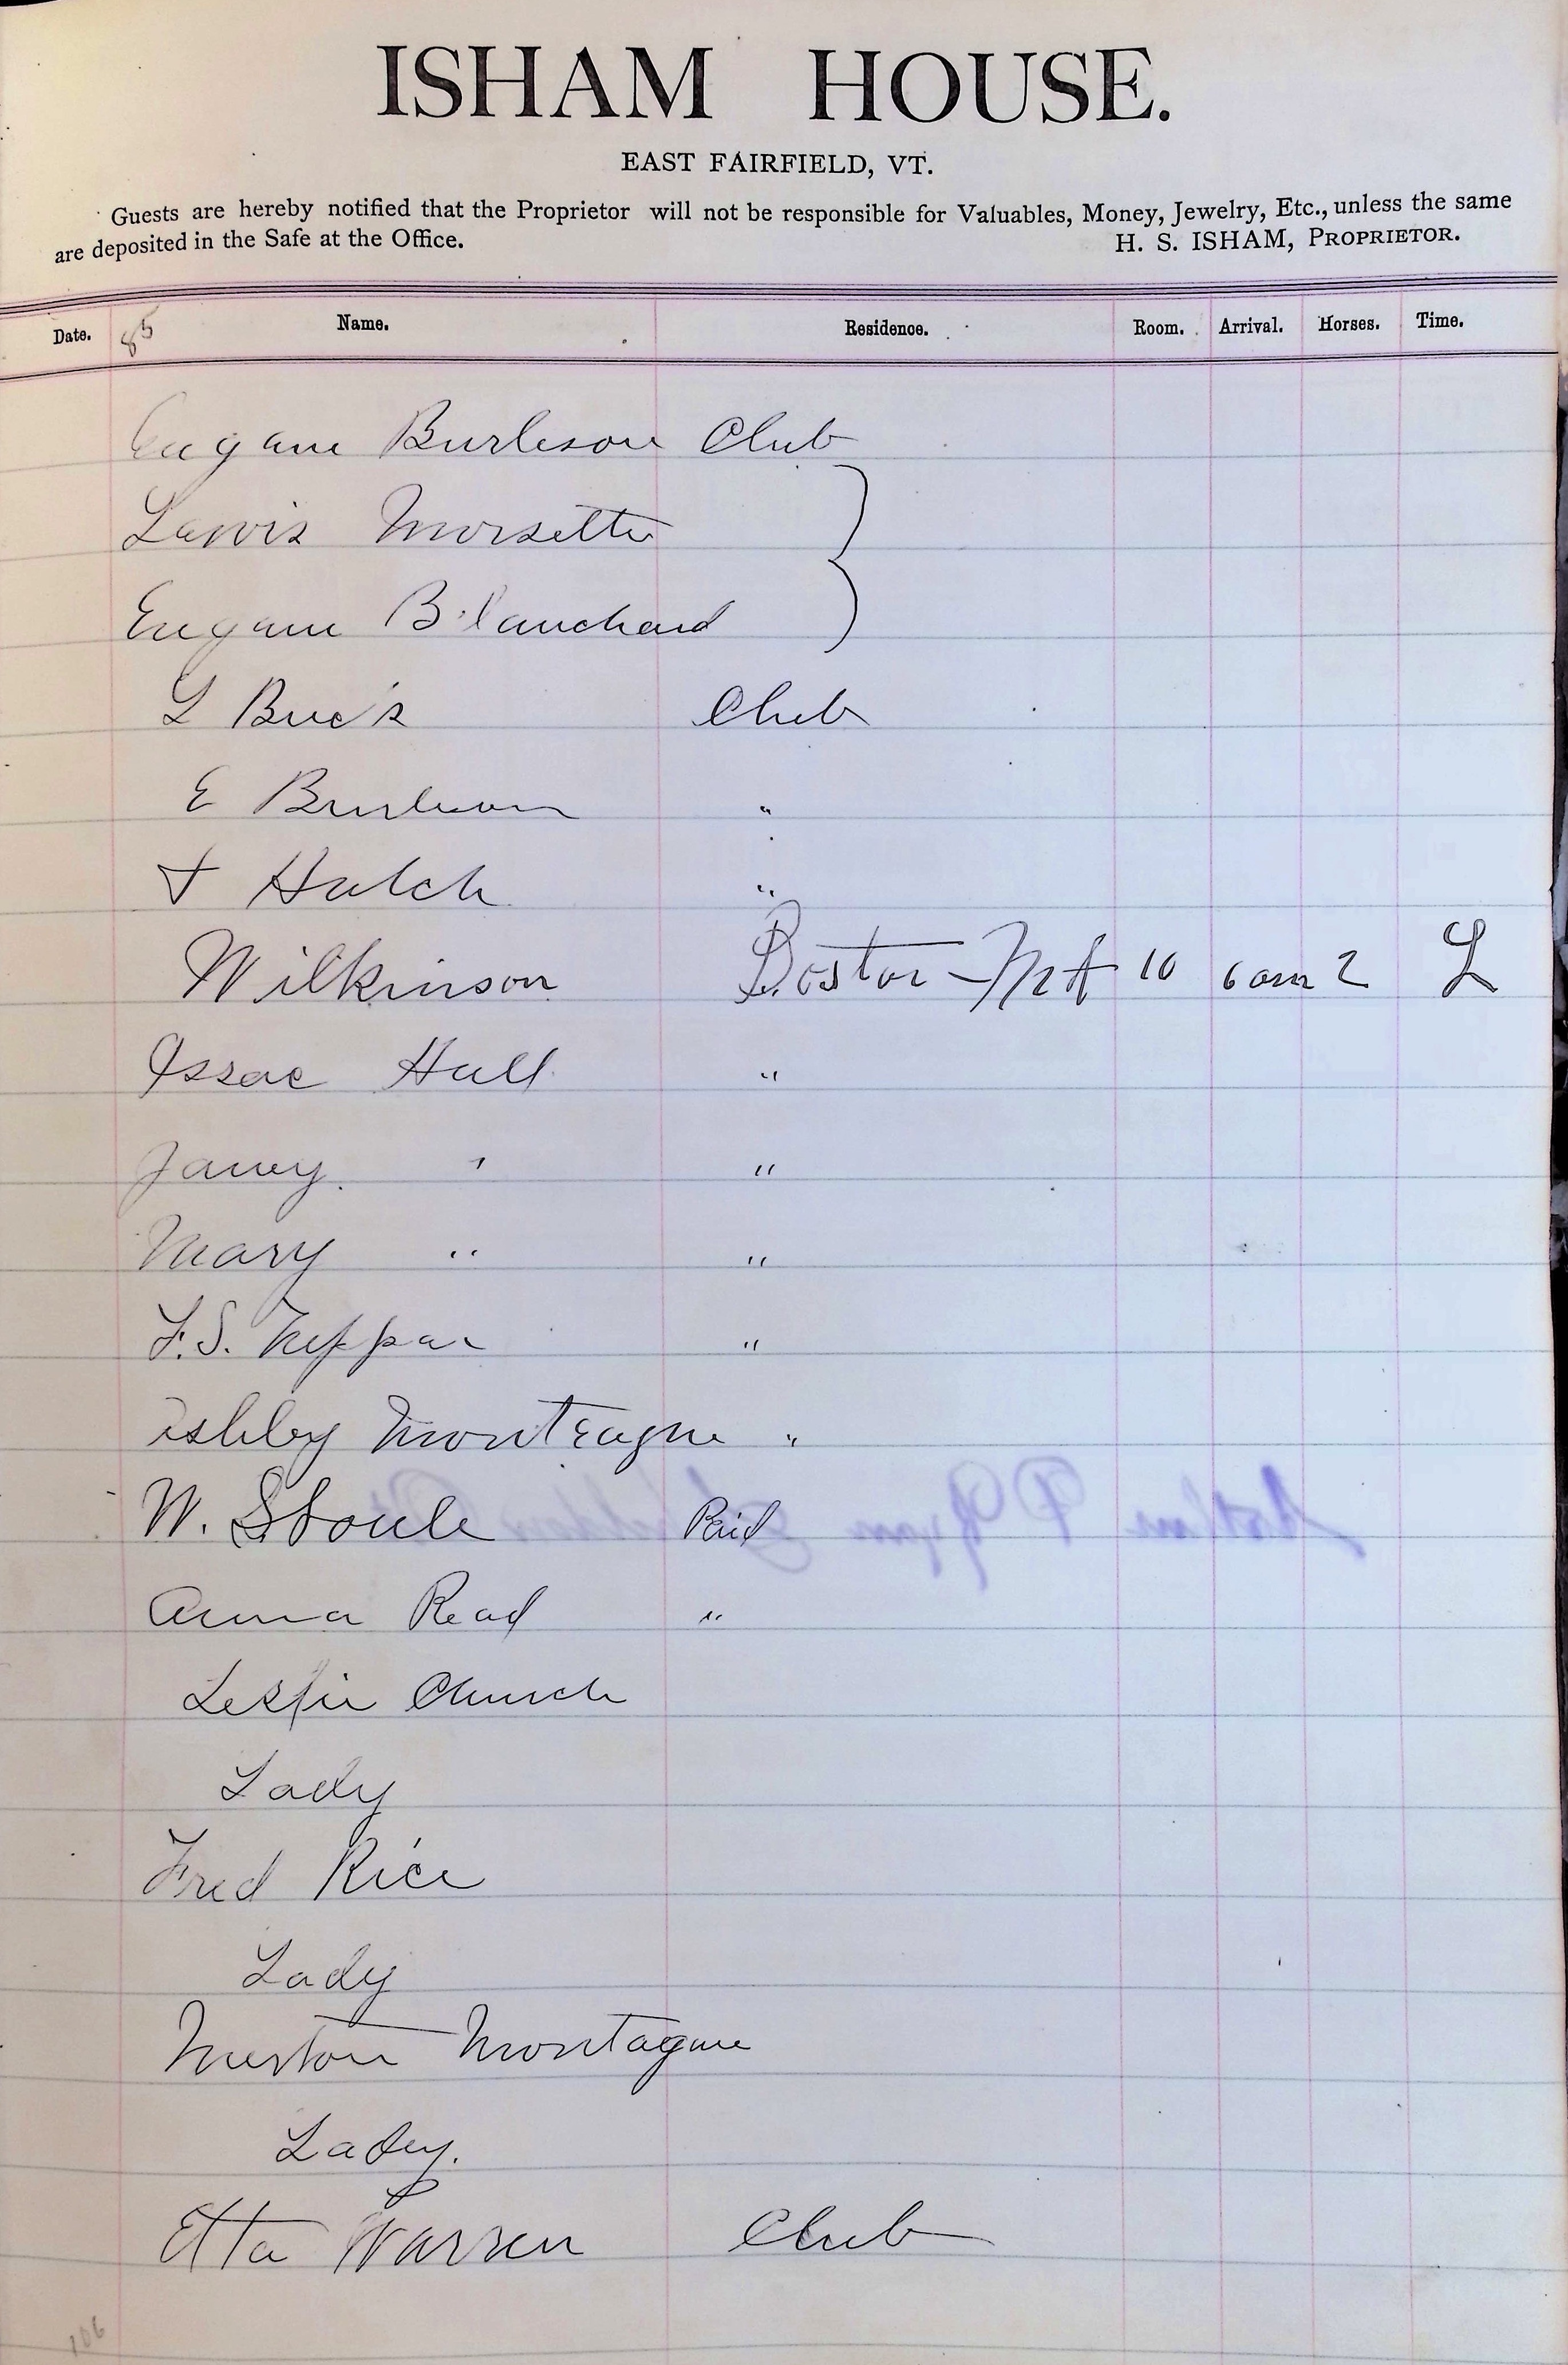 ISHAM HOUSE.
EAST FAIRFIELD, VT.
Guests are hereby notified that the Proprietor will not be responsible for Valuables, Money, Jewelry, Etc., unless the same
are deposited in the Safe at the Office. H. S. ISHAM, PROPRIETOR.
Date. 85 Name. Residence. Room. Arrival. Horses. Time.
Eugane Burleson Club
Lewis Morsette
Eugane Blanchard
L Club
E Burleson "
Hatch "
Wilkinson Boston - 10 6 am 2 L
Issac Hall "
" "
Mary " "
F.S. "
Ashley Monteagne "
W. Paid
Anna Read "
Leslie Church
Lady
Fred Rice
Lady
Merton Montague
Lady.
Etta Warren Club
106